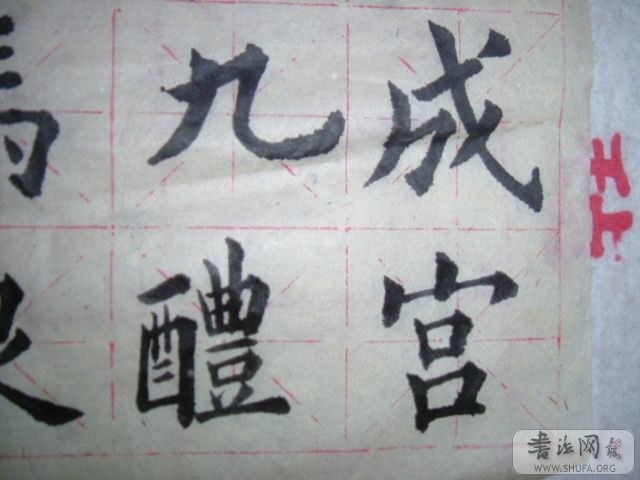 成宫
九醴
書法网
WWW.SHUFA.ORG